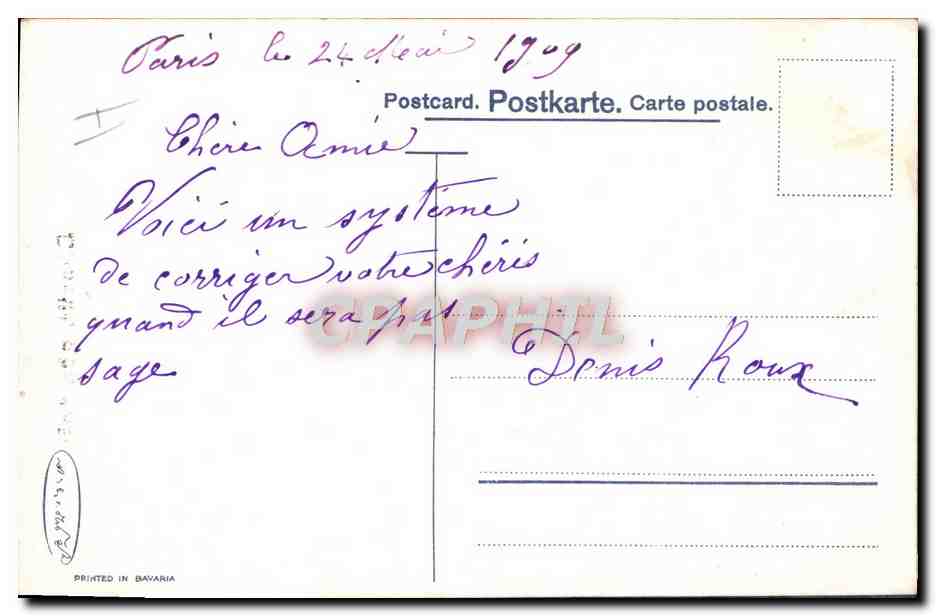 Paris le 24 Mai 1909
Postcard. Postkarte. Carte postale.
Chère Amie
Voici un système
de corriger votre chéris
quand il sera pas
sage
CPAPHIL
Denis Roux
PRINTED IN BAVARIA